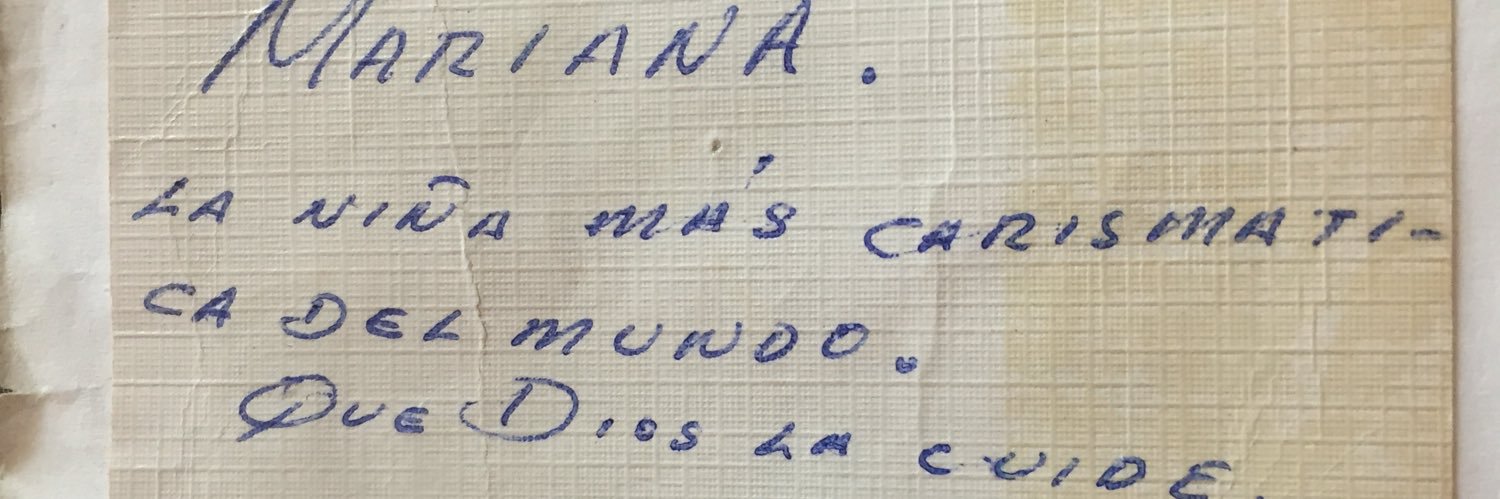 MARIANA.
LA NIÑA MÁS CARISMATI-
CA DEL MUNDO.
QUE DIOS LA CUIDE.